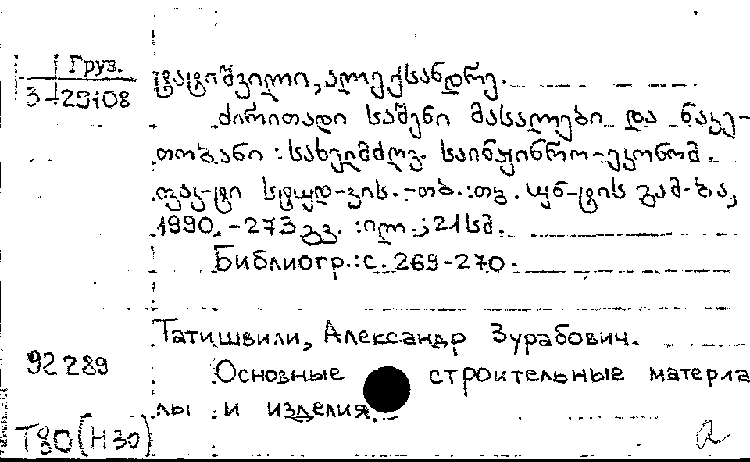 Груз.
3-29108
ტატიშვილი, ალექსანდრე.
ძირითადი საშენი მასალები და ნაკე-
თობანი : სახელმძღვ. საინჟინრო-ეკონომ.
ფაკ-ტი სტუდ-ვის. -თბ.:თბ. უნ-ტის გამ-ბა,
1990. -273 გვ. :ილ.; 21 სმ.
Библиогр.: с. 269-270.
Татишвили, Александр Зурабович.
92289
Основные строительные материа
лы и изделия
Т80(Н30)
а